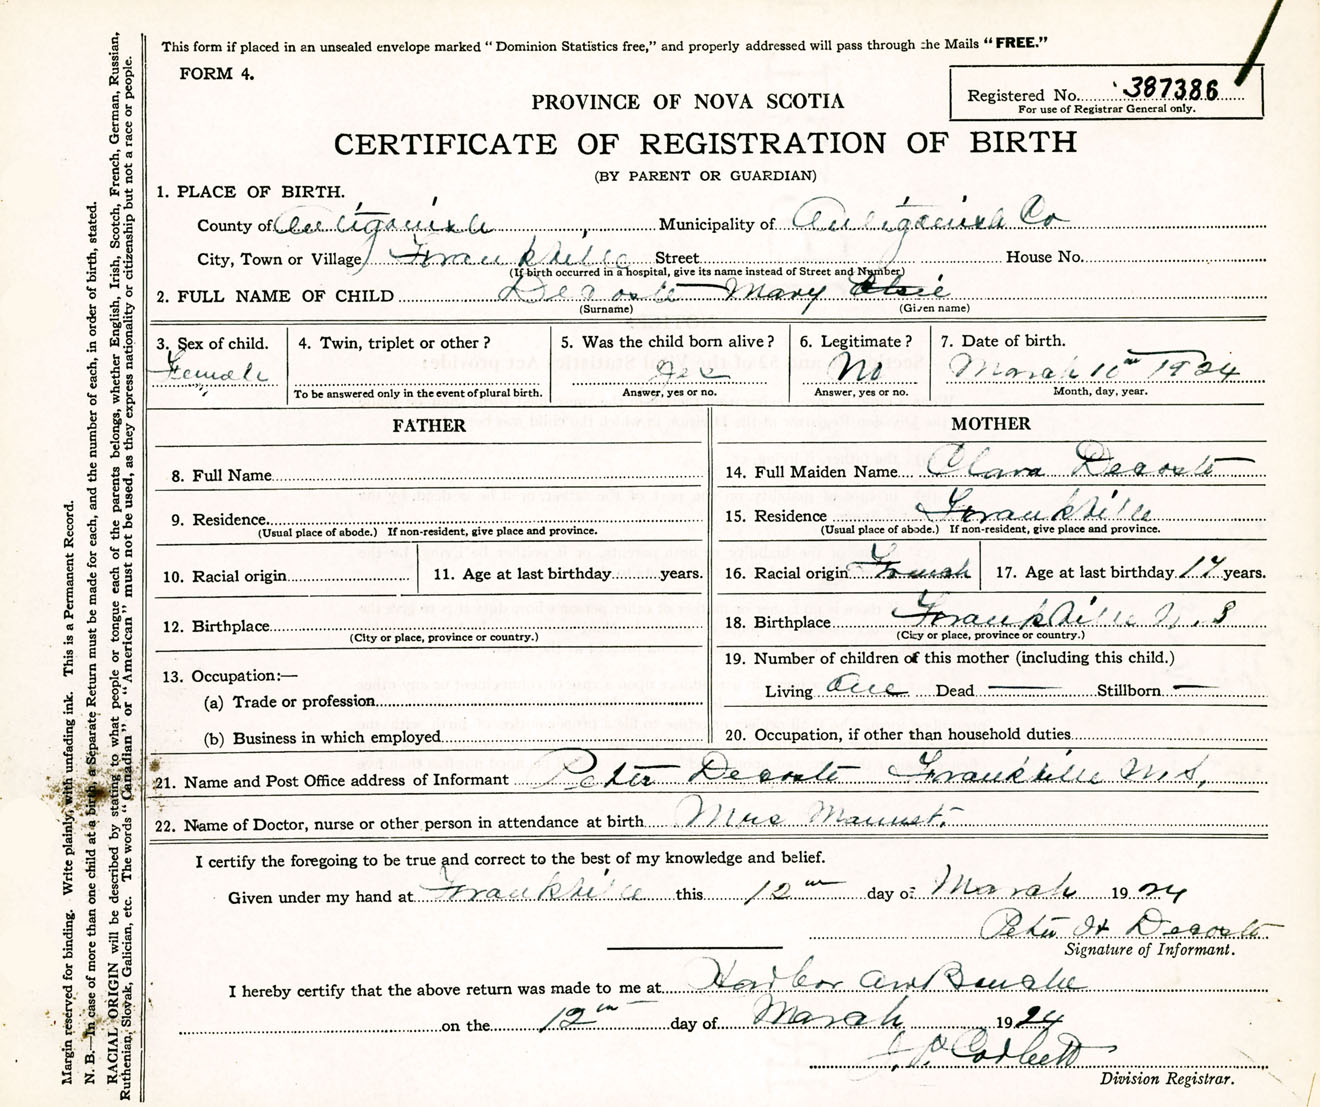 This form if placed in an unsealed envelope marked “Dominion Statistics free,” and properly addressed will pass through the Mails “FREE.”
FORM 4.
Registered No. 387386
For use of Registrar General only.
PROVINCE OF NOVA SCOTIA
CERTIFICATE OF REGISTRATION OF BIRTH
(BY PARENT OR GUARDIAN)
1. PLACE OF BIRTH.
County of Antigonish Municipality of Antigonish Co
City, Town or Village Frankville Street House No.
(If birth occurred in a hospital, give its name instead of Street and Number)
2. FULL NAME OF CHILD Decoste Mary Elsie
(Surname) (Given name)
3. Sex of child. 4. Twin, triplet or other? 5. Was the child born alive? 6. Legitimate? 7. Date of birth.
Female Yes No March 10th 1924
To be answered only in the event of plural birth. Answer, yes or no. Answer, yes or no. Month, day, year.
FATHER MOTHER
8. Full Name 14. Full Maiden Name Clara Decoste
9. Residence 15. Residence Frankville
(Usual place of abode.) If non-resident, give place and province. (Usual place of abode.) If non-resident, give place and province.
10. Racial origin 11. Age at last birthday years. 16. Racial origin French 17. Age at last birthday 17 years.
12. Birthplace 18. Birthplace Frankville N. S
(City or place, province or country.) (City or place, province or country.)
13. Occupation:— 19. Number of children of this mother (including this child.)
(a) Trade or profession Living One Dead — Stillborn —
(b) Business in which employed 20. Occupation, if other than household duties
21. Name and Post Office address of Informant Peter Decoste Frankville N.S.
22. Name of Doctor, nurse or other person in attendance at birth Mrs
I certify the foregoing to be true and correct to the best of my knowledge and belief.
Given under my hand at Frankville this 12th day of March 1924
Peter Decoste
Signature of Informant.
I hereby certify that the above return was made to me at Harbor au Bouche
on the 12th day of March 1924
J. P. Corbett
Division Registrar.
Margin reserved for binding. Write plainly, with unfading ink. This is a Permanent Record.
N. B.—In case of more than one child at a birth, a Separate Return must be made for each, and the number of each, in order of birth, stated.
RACIAL ORIGIN will be described by stating to what people or tongue each of the parents belongs, whether English, Irish, Scotch, French, German, Russian,
Ruthenian, Slovak, Galician, etc. The words “Canadian” or “American” must not be used, as they express nationality or citizenship but not a race or people.